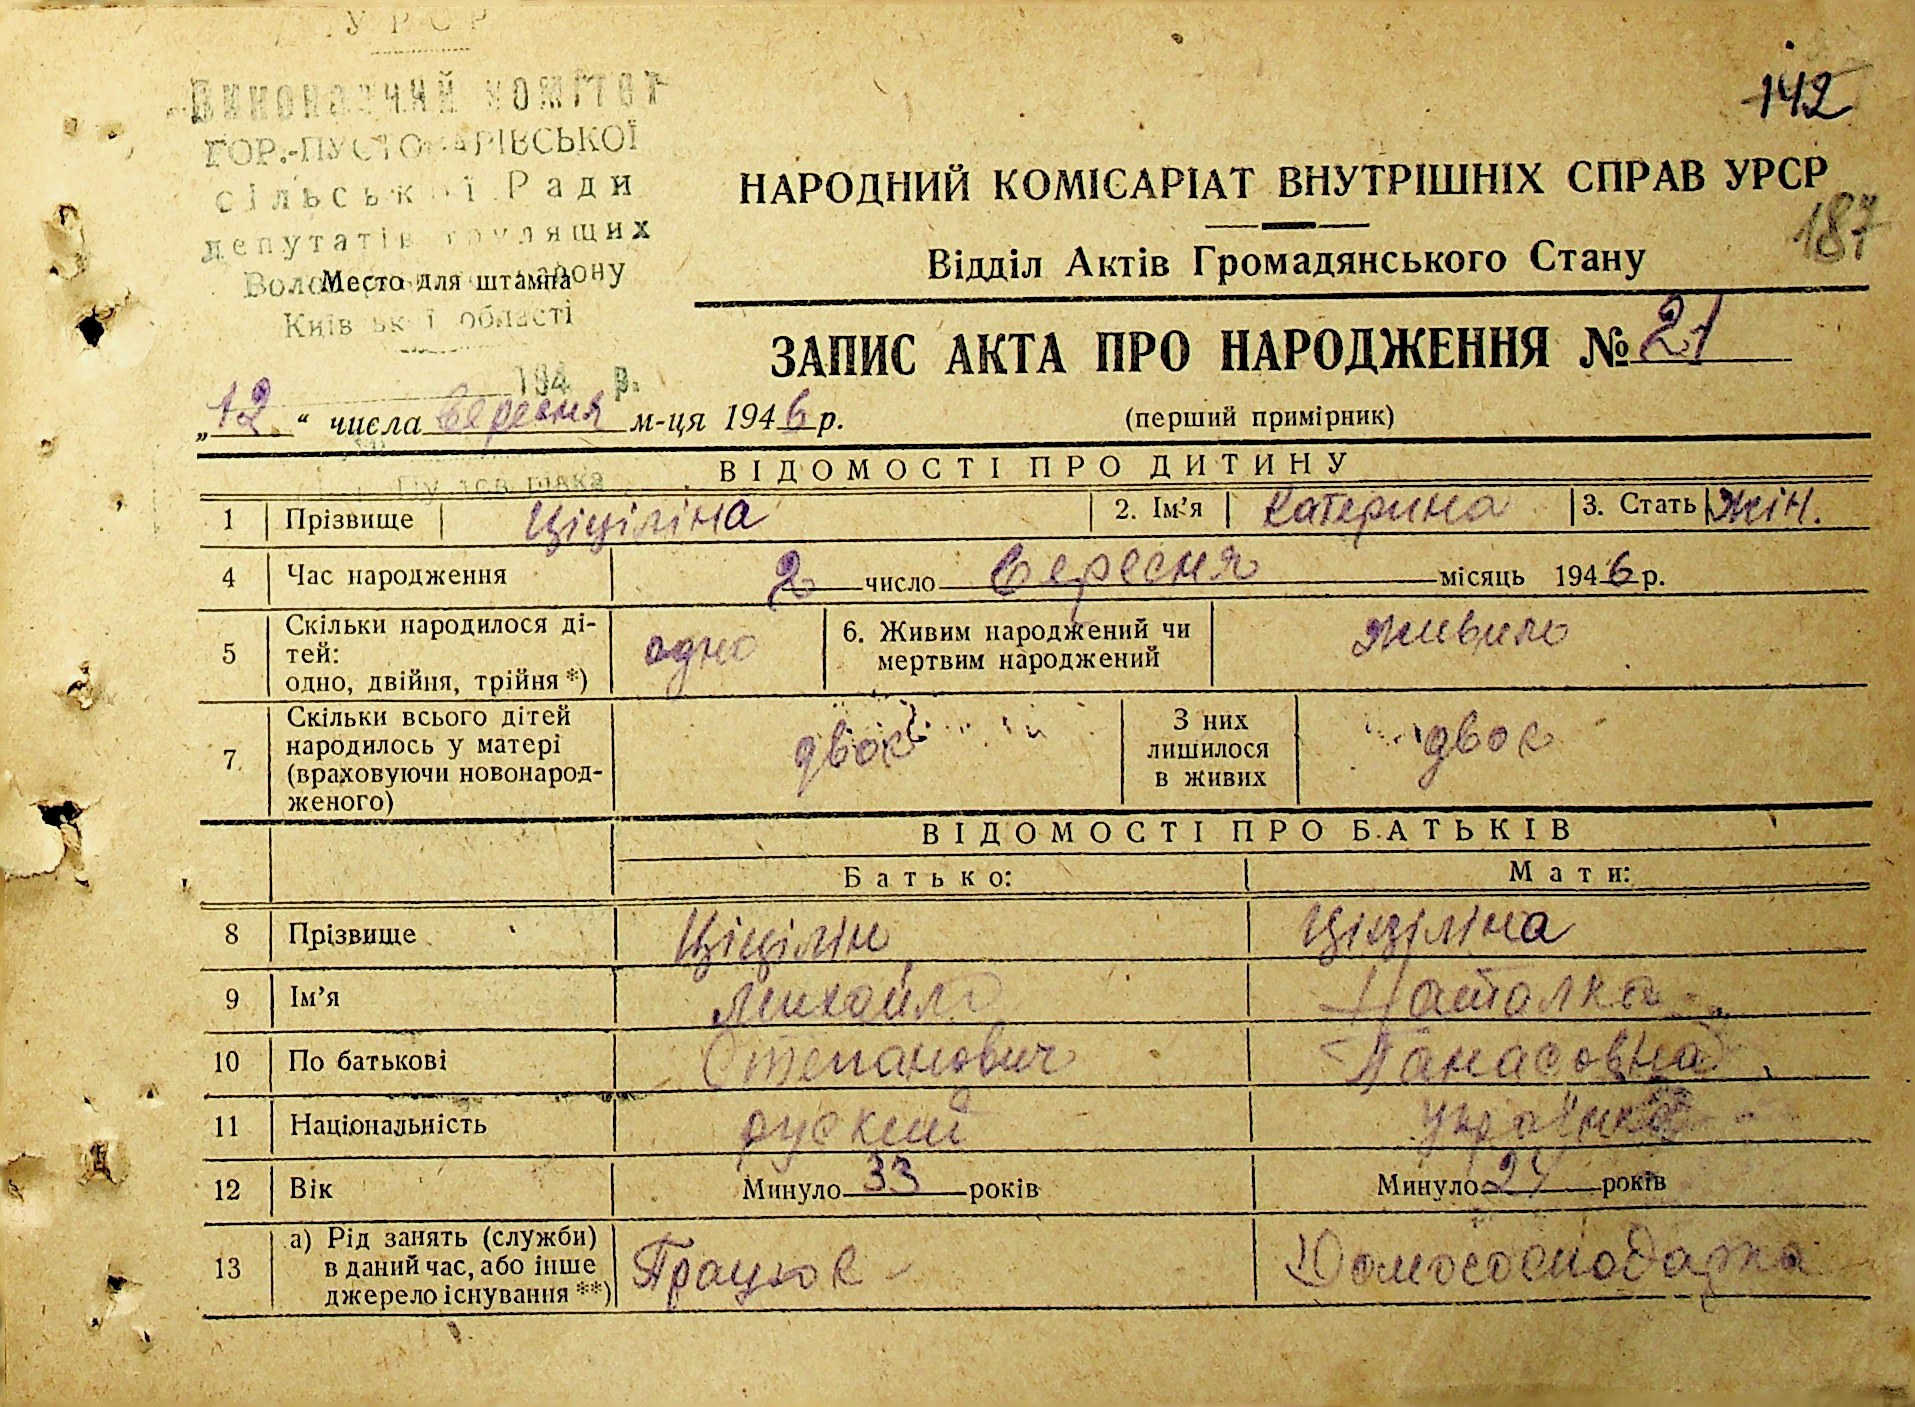 УРСР
Виконавчий комітет
ГОР.-ПУСТОВАРІВСЬКОЇ
сільської Ради
депутатів трудящих
району
Место для штампа
Київської області
194 р.
142
НАРОДНИЙ КОМІСАРІАТ ВНУТРІШНІХ СПРАВ УРСР
187
Відділ Актів Громадянського Стану
ЗАПИС АКТА ПРО НАРОДЖЕННЯ № 21
„12“ числа вересня м-ця 1946 р.
(перший примірник)
ВІДОМОСТІ ПРО ДИТИНУ
1 Прізвище Ціціліна 2. Ім’я Катерина 3. Стать жін.
4 Час народження 2 число вересня місяць 1946 р.
5 Скільки народилося ді-
тей:
одно, двійня, трійня *) одно 6. Живим народжений чи
мертвим народжений живим
7 Скільки всього дітей
народилось у матері
(враховуючи новонарод-
женого) двоє З них
лишилося
в живих двоє
ВІДОМОСТІ ПРО БАТЬКІВ
Батько: Мати:
8 Прізвище Ціцілін Ціціліна
9 Ім’я Михайло Наталка
10 По батькові Степанович Панасовна
11 Національність руский українка
12 Вік Минуло 33 років Минуло років
13 а) Рід занять (служби)
в даний час, або інше
джерело існування **) Працює Домогосподарка